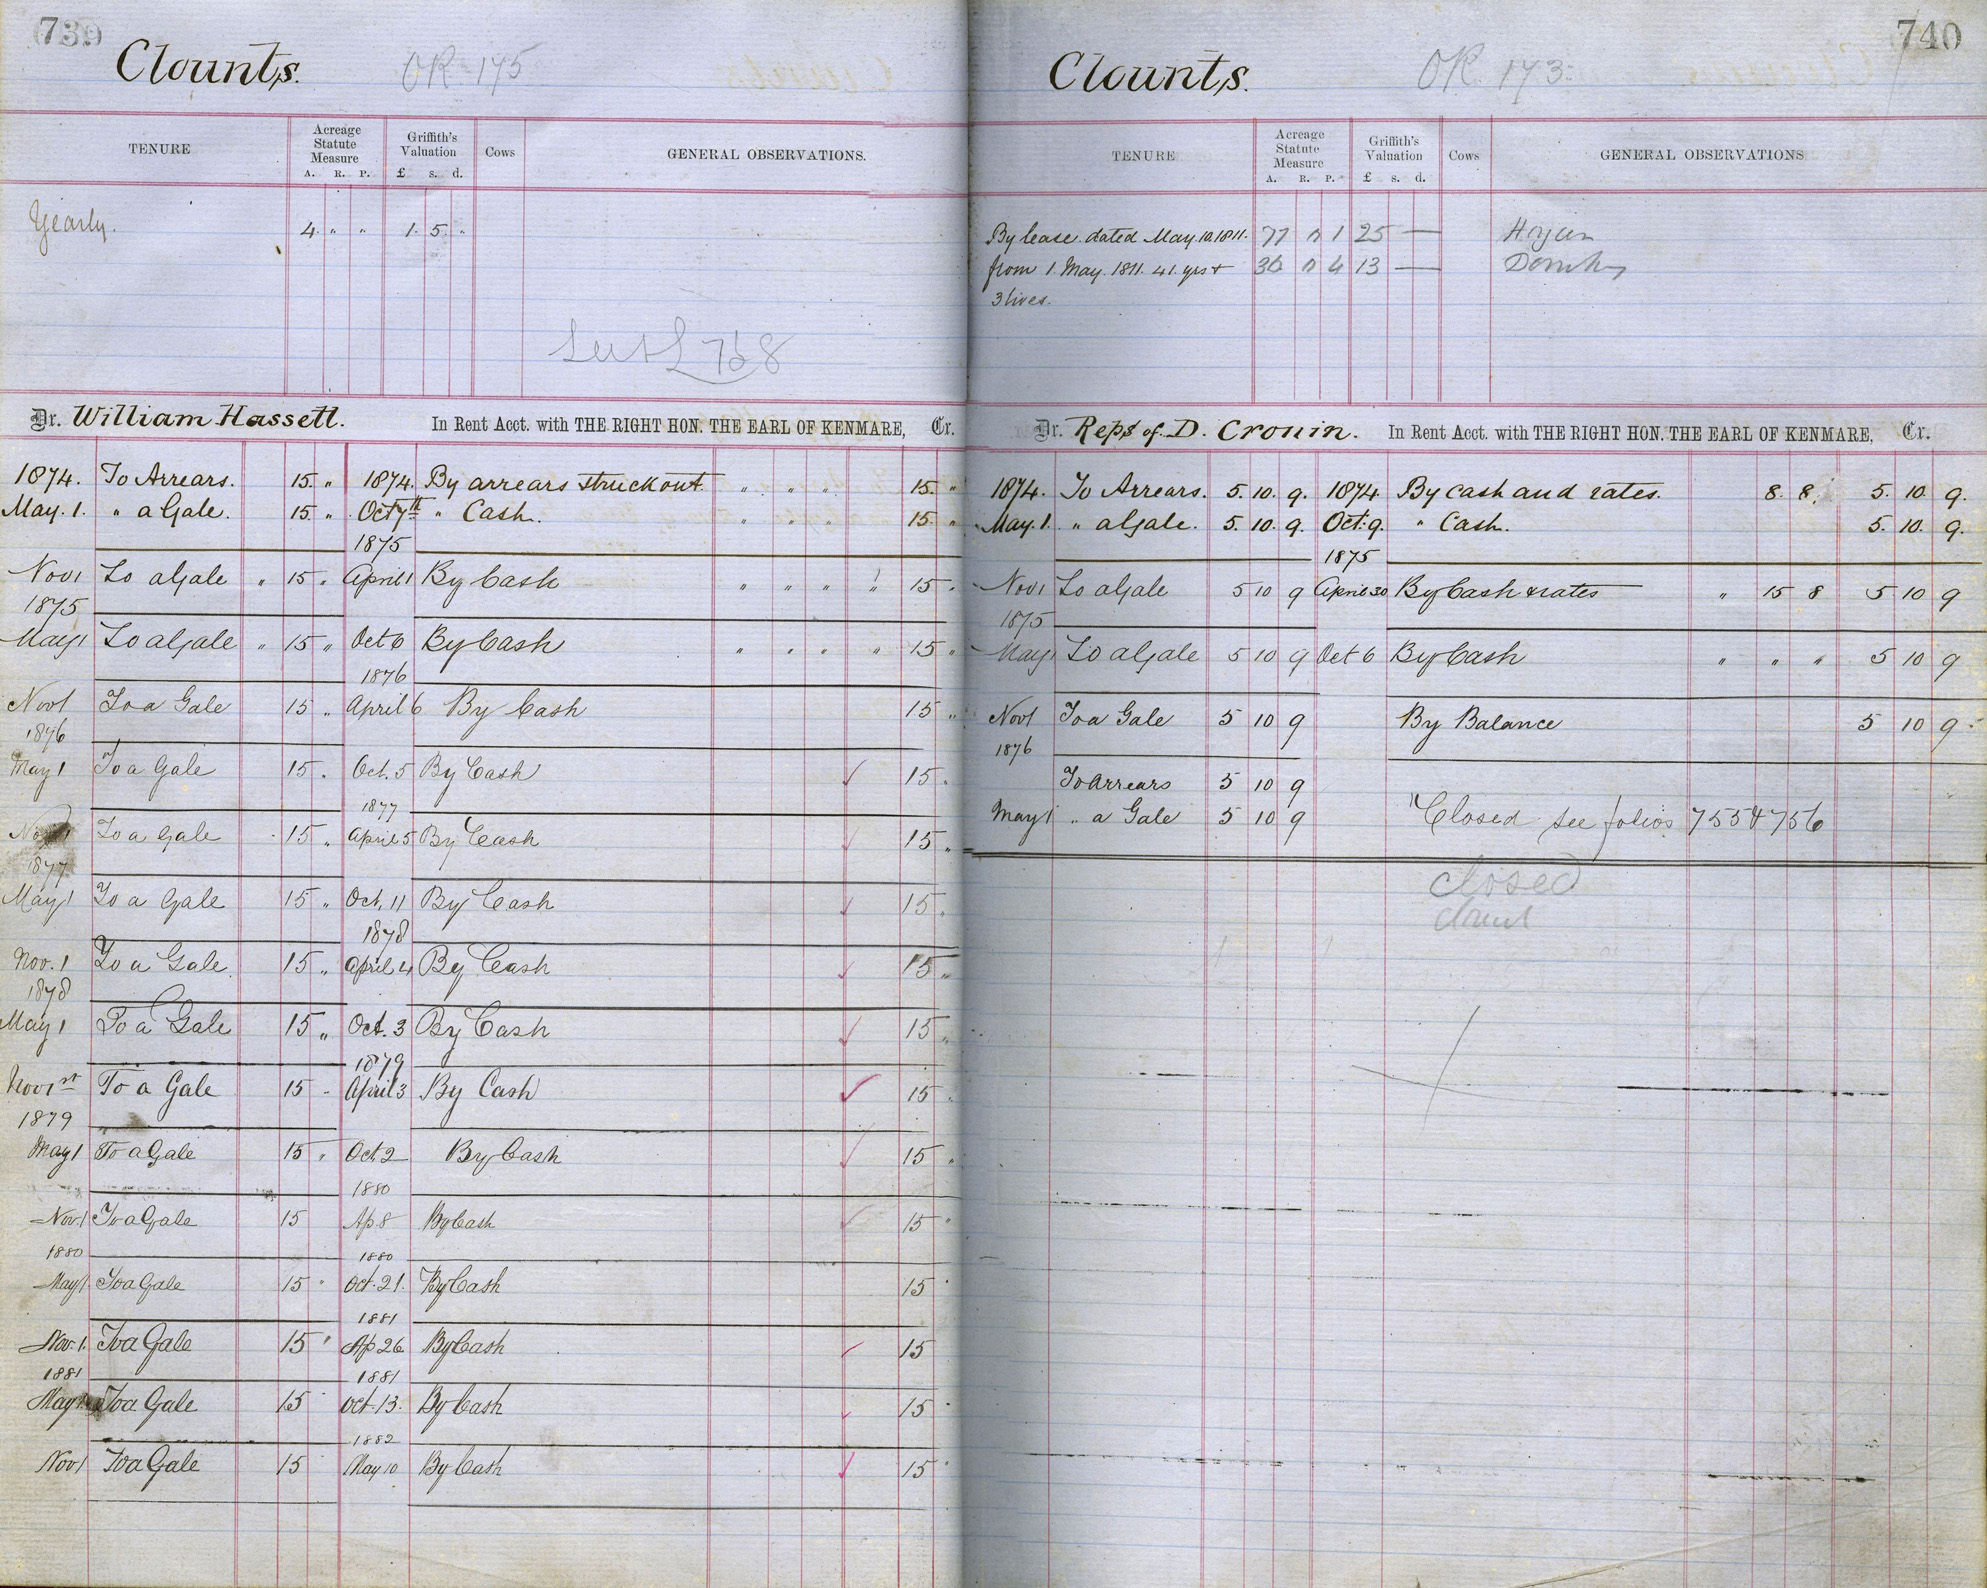 739
Clounts.
OR 175
TENURE
Acreage Statute Measure
A. R. P.
Griffith's Valuation
£ s. d.
Cows
GENERAL OBSERVATIONS.
Yearly. 4. " " 1. 5. "
768
Dr. William Hassett. In Rent Acct. with THE RIGHT HON. THE EARL OF KENMARE, Cr.
1874. To Arrears. 15. " 1874. By arrears struck out. " " " 15. "
May. 1. " a Gale. 15. " Oct 7th " Cash. " " " 15. "
1875
Nov 1 To a Gale " 15 " April 1 By Cash " " " " 15 "
1875
May 1 To a Gale " 15 " Oct 6 By Cash " " " " 15 "
1876
Nov 1 To a Gale 15 " April 6 By Cash 15 "
1876
May 1 To a Gale 15 . Oct. 5 By Cash 15 .
1877
Nov 1 To a Gale 15 " April 5 By Cash 15 "
1877
May 1 To a Gale 15 " Oct. 11 By Cash 15 "
1878
Nov. 1 To a Gale 15 " April 4 By Cash 15 "
1878
May 1 To a Gale 15 " Oct. 3 By Cash 15 "
1879
Nov 1st To a Gale 15 - April 3 By Cash 15 .
1879
May 1 To a Gale 15 " Oct 2 By Cash 15 "
1880
Nov. 1 To a Gale 15 Ap. 8 By Cash 15 "
1880 1880
May 1 To a Gale 15 " Oct. 21. By Cash 15 "
1881
Nov. 1. To a Gale 15 " Ap 26 By Cash 15
1881 1881
May 1 To a Gale 15 Oct. 13. By Cash 15
1882
Nov 1 To a Gale 15 May 10 By Cash 15
740
Clounts.
OR. 173
TENURE
Acreage Statute Measure
A. R. P.
Griffith's Valuation
£ s. d.
Cows
GENERAL OBSERVATIONS
By lease dated May 10. 1811. 77 0 1 25 —
from 1. May. 1811. 41. yrs + 36 0 4 13 —
3 lives.
Dr. Reps of D. Cronin. In Rent Acct. with THE RIGHT HON. THE EARL OF KENMARE, Cr.
1874. To Arrears. 5. 10. 9. 1874 By cash and rates. 8. 8. 5. 10. 9.
May. 1. " a Gale. 5. 10. 9. Oct. 9. " Cash. 5. 10. 9.
1875
Nov 1 To a Gale 5 10 9 April 30 By Cash & rates " 15 8 5 10 9
1875
May 1 To a Gale 5 10 9 Oct 6 By Cash " " " 5 10 9
Nov 1 To a Gale 5 10 9 By Balance 5 10 9
1876
To arrears 5 10 9
May 1 " a Gale 5 10 9 Closed see folios 755 & 756
closed